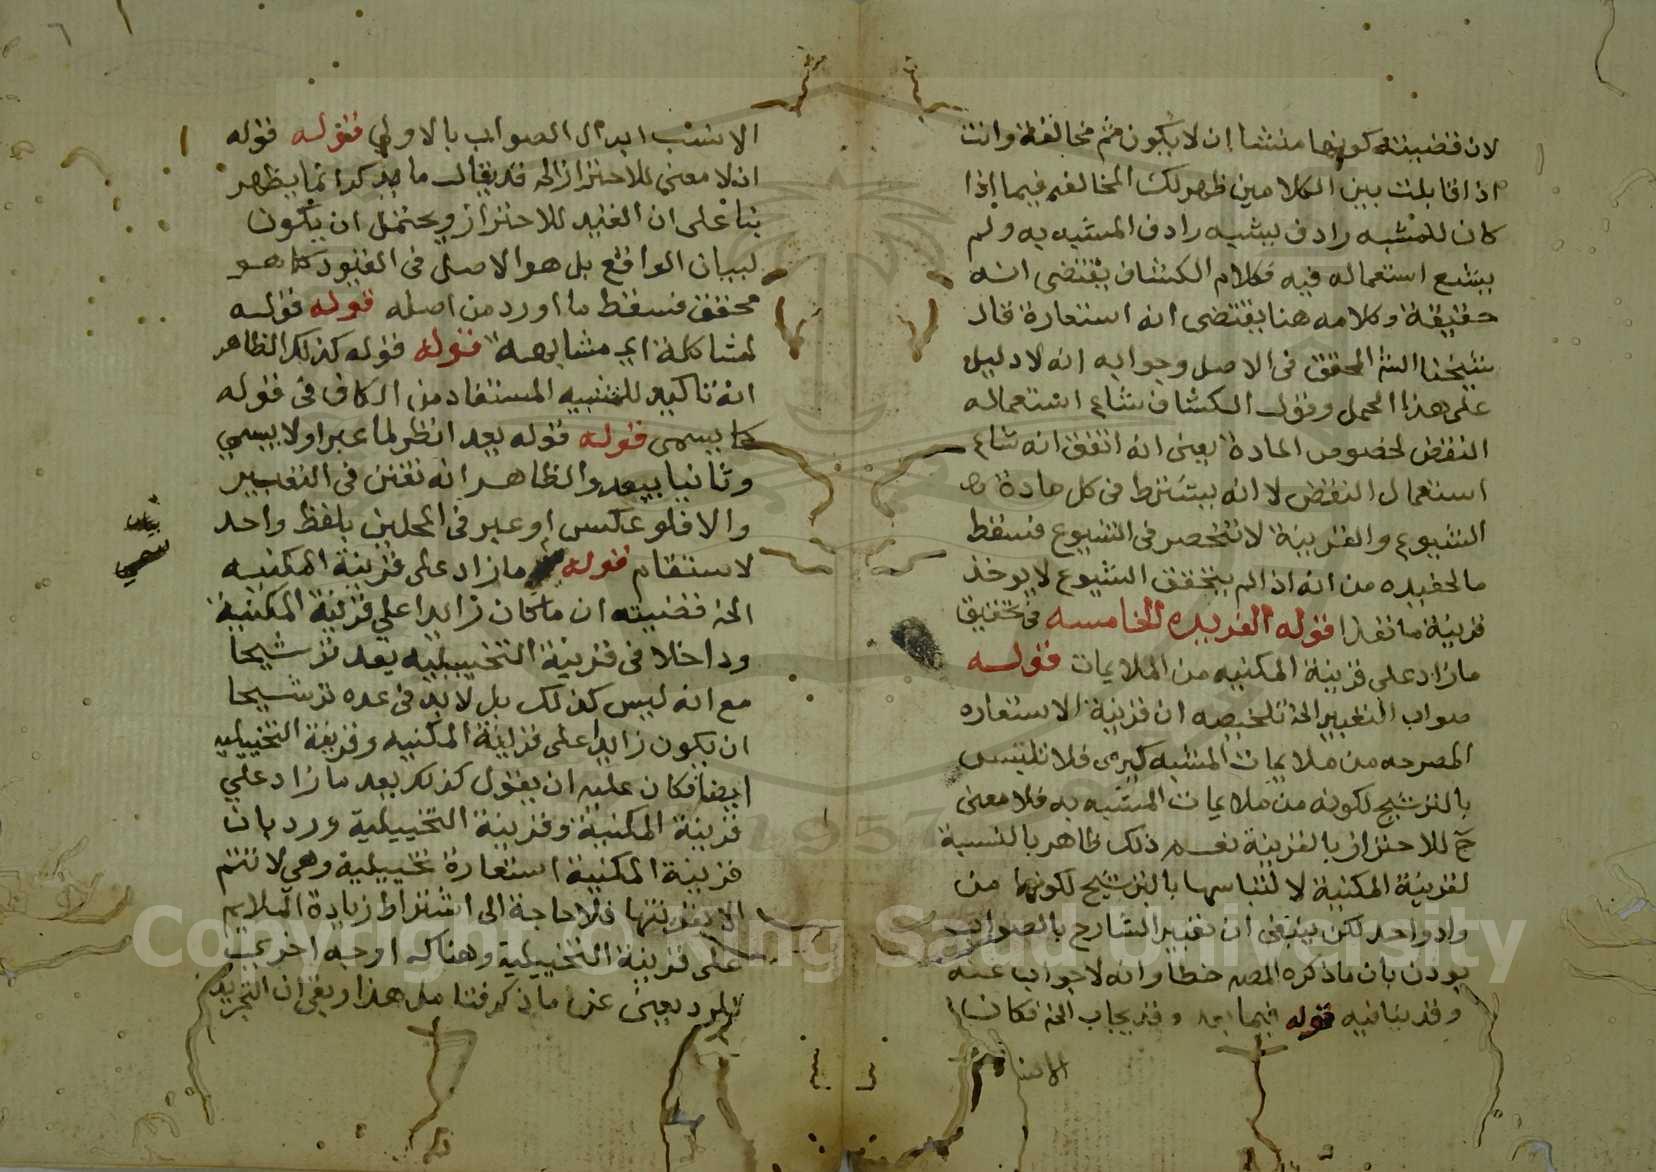 لان قضيته كونها منشا ان لا يكون ثم مخالفة وانت
اذا قابلت بين الكلامين ظهر لك المخالفه فيما اذا
كان للمشبه رادف يشبه رادف المشبه به ولم
يشع استعماله فيه فكلام الكشاف يقتضى انه
حقيقة وكلامه هنا يقتضى انه استعارة قال
شيخنا الش المحقق فى الاصل وجوابه انه لا دليل
على هذا الحمل وقول الكشاف شاع استعماله
النقض لخصوص المادة يعنى انه اتفق انه شاع
استعمال النقض لا انه يشترط فى كل مادة
الشيوع والقرينة لا تنحصر فى الشيوع فسقط
مالحفيده من انه اذا لم يتحقق الشيوع لا يوخذ
قرينة ما نقدا قوله الفريده الخامسه فى تحقيق
ما زاد على قرينة المكنيه من الملايمات قوله
صواب التعبير الخ تلخيصه ان قرينة الاستعاره
المصرحه من ملايمات المشبه كيرمى فلا تلتبس
بالترشيح لكونه من ملايمات المشبه به فلا معنى
ح للاحتراز بالقرينة نعم ذلك ظاهر بالنسبة
لقرينة المكنية لا لتباسها بالترشيح لكونها من
واد واحد لكن ينبغى ان تغيير الشارح بالصواب
يوذن بان ماذكره المصه خطا وانه لا جواب عنه
وقد ينافيه قوله فيما بعد وقد يجاب الخ فكان
الانسب
الانسب ابدال الصواب بالاولي قوله قوله
ان لا معنى للاحتراز الخ قد يقال ما ذكر انما يظهر
بنا على ان القيد للاحتراز ويحتمل ان يكون
لبيان الواقع بل هو الاصل فى القيود كما هو
محقق فسقط ما اورد من اصله قوله قوله
لمشاكلة اي مشابهة قوله قوله كذلك الظاهر
انه تاكيد للتشبيه المستفاد من الكاف فى قوله
كما يسمى قوله قوله بعد انظر لما عبر اولا بيسمي
وثانيا بيعد والظاهر انه تفنن فى التعبير
والا فلو عكس او عبر فى المحلين بلفظ واحد
لاستقام قوله ما زاد على قرينة المكنيه
الخ قضيته ان ما كان زايدا علي قرينة المكنية
وداخلا فى قرينة التخييليه يعد ترشيحا
مع انه ليس كذلك بل لابد فى عده ترشيحا
ان يكون زايدا على قرينة المكنيه وقرينة التخييليه
ايضا فكان عليه ان يقول كذلك يعد ما زاد علي
قرينة المكنية وقرينة التخييلية ورد بان
قرينة المكنية استعارة تخييلية وهي لا تتم
الا بقرينتها فلا حاجة الى اشتراط زيادة الملايم
على قرينة التخييلية وهناك اوجه اخري
للرد يعنى عنها ما ذكر فتامل هذا وبقى ان التجريد
Copyright © King Saud University
1957